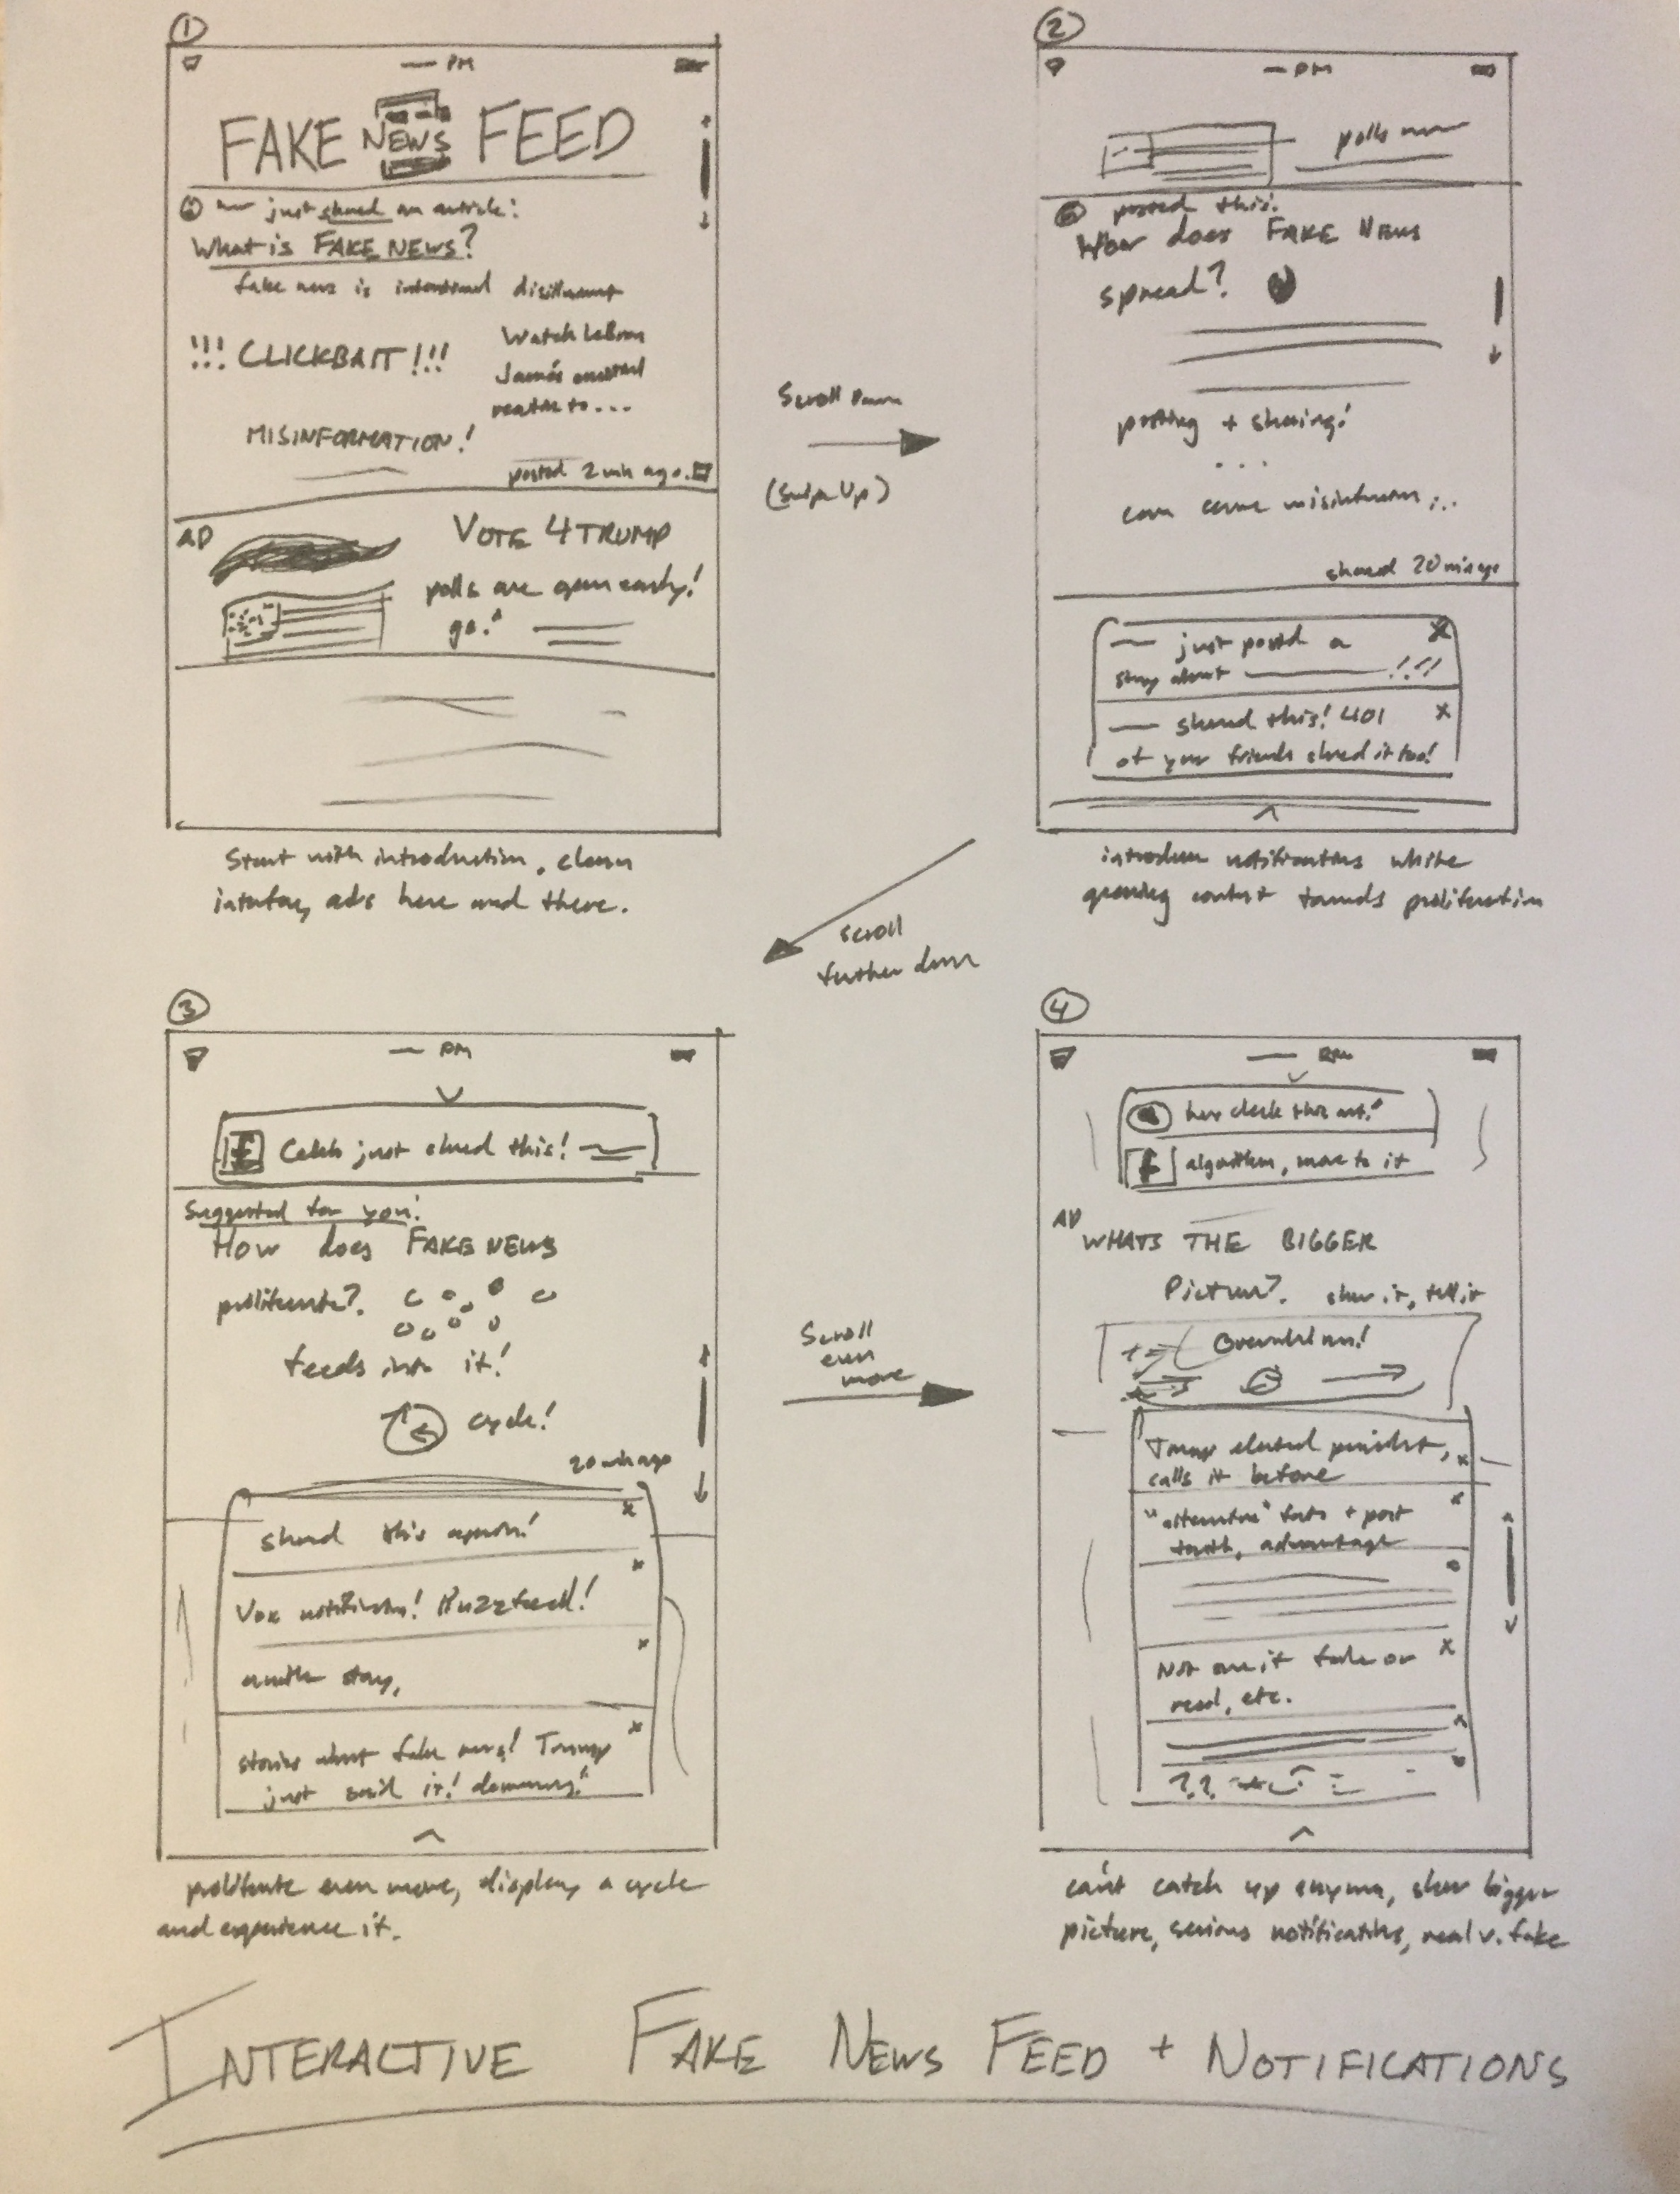 1
PM
FAKE NEWS FEED
just shared an article:
What is FAKE NEWS?
fake news is intentional
!!! CLICKBAIT !!!
Watch LeBron
James
reaction to...
MISINFORMATION!
posted 2 min ago.
AD
VOTE 4 TRUMP
polls are open early!
go!
Start with introduction, clean
interface, ads here and there.
Scroll Down
(Swipe Up)
2
PM
polls
posted this!
How does FAKE NEWS
spread?
posting + sharing!
...
shared 20 min ago
just posted a X
story about !!!
shared this! 401 X
of your friends shared it too!
introduce notifications while
growing content towards proliferation
scroll
further down
3
PM
f Caleb just shared this!
Suggested for you!
How does FAKE NEWS
proliferate?
feeds into it!
cycle!
20 min ago
x
shared this again!
x
Vox notification! Buzzfeed!
x
another story,
x
stories about fake news! Trump
just said it!
proliferate even more, display a cycle
and experience it.
Scroll
even
more
4
PM
hey check this out!
f algorithm, more to it
AD
WHATS THE BIGGER
Picture? show it, tell it
Trump elected president, x
calls it before
"alternative" facts + post x
truth, advantage
Not one it fake or x
read, etc.
x
??
can't catch up anymore, show bigger
picture, serious notifications, real v. fake
INTERACTIVE FAKE NEWS FEED + NOTIFICATIONS